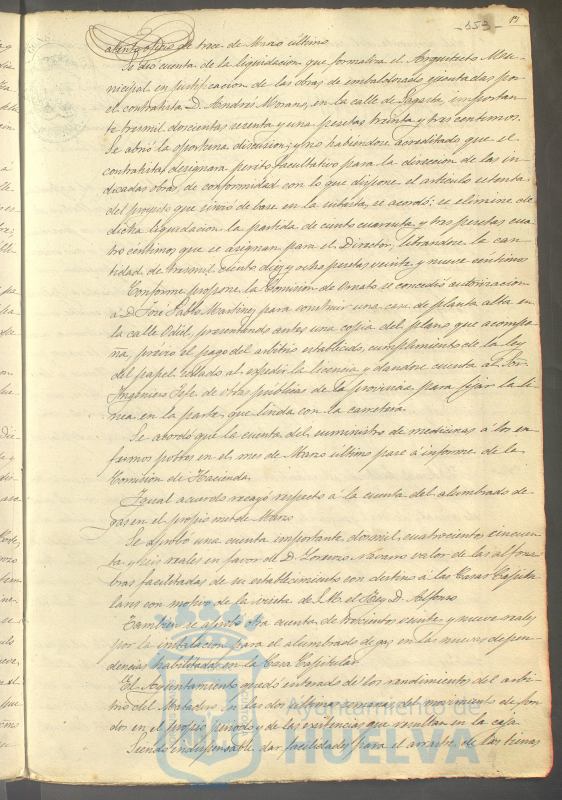 -153-
de trece de Marzo último
Se dio cuenta de la liquidacion que formaliza el Arquitecto Mu-
nicipal en justificacion de las obras de embaldosado ejecutadas por
el contratista D. Andres Morano, en la calle de Sagasta, importan-
te tresmil doscientas sesenta y una pesetas treinta y tres centimos.
Se abrió la oportuna discusion; y no habiendose acreditado que el
contratista designara perito facultativo para la direccion de las in-
dicadas obras, de conformidad con lo que dispone el articulo setenta
del proyecto que sirvió de base en la subasta, se acordó: se elimine de
dicha liquidacion la partida de ciento cuarenta y tres pesetas cua-
tro centimos que se asignan para el Director, librandose la can-
tidad de tresmil ciento diez y ocho pesetas veinte y nueve centimos
Conforme propone la Comision de Ornato se concedió autorizacion
á D. José Pablo Martinez para construir una casa de planta alta en
la calle Odiel, presentando antes una copia del plano que acompa-
ña, prévio el pago del arbitrio establecido, cumplimiento de la ley
del papel sellado al expedir la licencia y dandose cuenta al Sor.
Ingeniero Jefe de obras públicas de la provincia para fijar la li-
nea en la parte que linda con la carretera.
Se acordó que la cuenta del suministro de medicinas á los en-
fermos pobres en el mes de Marzo último pase á informe de la
Comision de Hacienda.
Igual acuerdo recayó respecto á la cuenta del alumbrado de
gas en el propio mes de Marzo
Se aprobó una cuenta importante dosmil cuatrocientos cincuen-
ta y seis reales en favor de D. Lorenzo valor de las alfom-
bras facilitadas de su establecimiento con destino á las Casas Capitu-
lares con motivo de la visita de S. M. el Rey D. Alfonso
Tambien se aprobó otra cuenta de trescientos veinte y nueve reales
por la instalacion para el alumbrado de gas en las nuevas depen-
dencias habilitadas en la Casa Capitular.
El Ayuntamiento quedó enterado de los rendimientos del arbi-
trio del Matadero en las dos últimas semanas del movimiento de fon-
dos en el propio periodo y de las existencias que resultan en la caja.
Siendo indispensable dar facilidades para el arrastre de las tierras
Ayuntamiento de
HUELVA